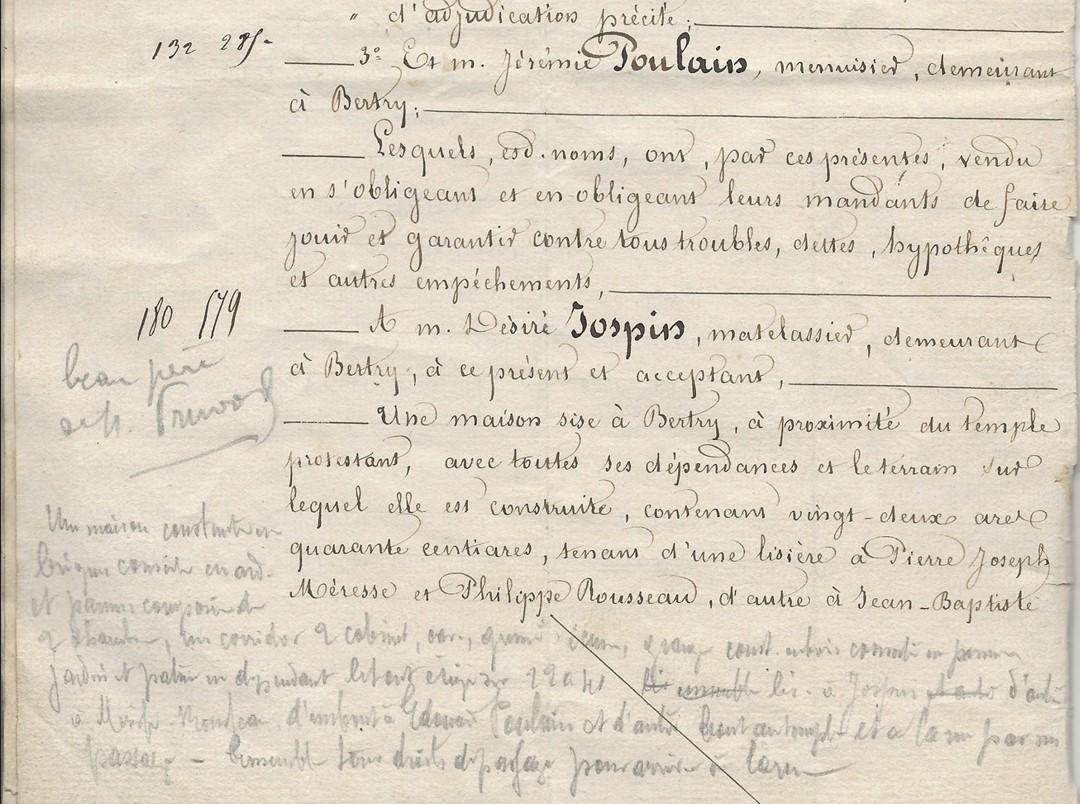 〃 d'adjudication précité;
132 285-
3º Et m. Jérémie Poulain, menuisier, demeurant
à Bertry;
Lesquels, esd. noms, ont, par ces présentes, vendu
en s'obligeant et en obligeant leurs mandants de faire
jouir et garantir contre tous troubles, dettes, hypothèques
et autres empêchements,
180 579
A m. Désiré Jospin, matelassier, demeurant
à Bertry, à ce présent et acceptant,
beau père
de M.
Une maison sise à Bertry, à proximité du temple
protestant, avec toutes ses dépendances et le terrain sur
lequel elle est construite, contenant vingt-deux ares
quarante centiares, tenant d'une lisière à Pierre Joseph
Méresse et Philippe Rousseau, d'autre à Jean-Baptiste
Une maison construite en
briques couverte en ard.
et pannes composée de
2 chambres, un corridor 2 cabinet, cave, grange const. en bois couverte en pannes
jardin et pature en dépendant le tout érigé sur 22 a 40 lis. à Jospin d'autre
à Rousseau d'un bout à Edouard Poulain et d'autre bout au temple et à la rue par un
passage - ensemble tous droits de passage pour arriver à la rue